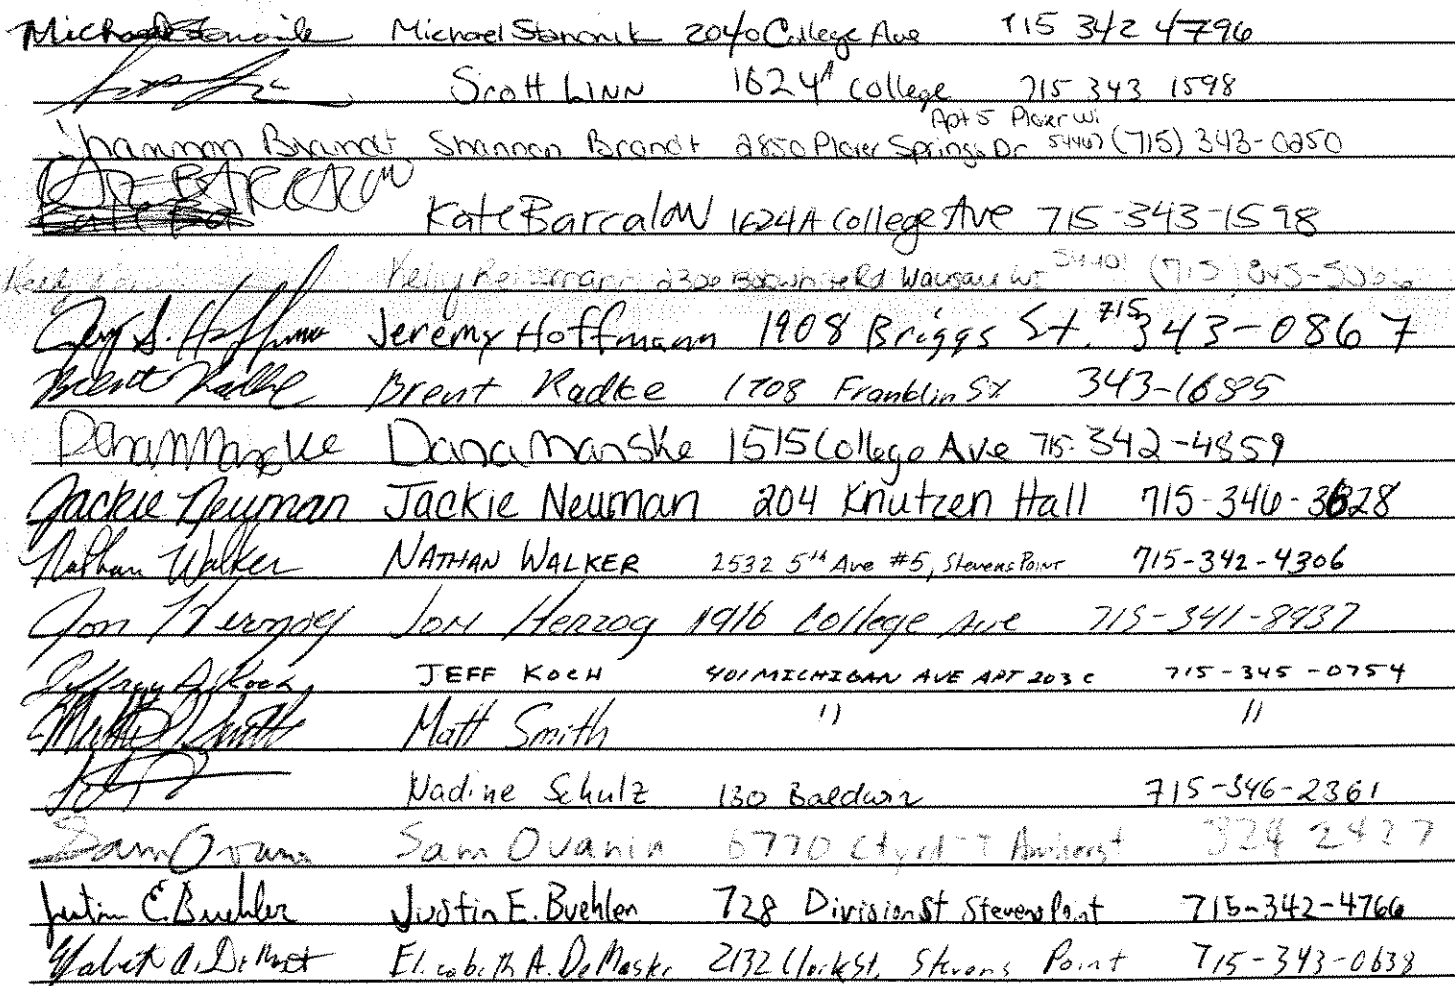 Michael Stanonik Michael Stanonik 2040 College Ave 715 342 4796
Scott Linn 1624A College 715 343 1598
Apt 5 Plover Wi
Shannon Brandt Shannon Brandt 2850 Plover Springs Dr 54467 (715) 343-0250
Kate Barcalow Kate Barcalow 1624A College Ave 715-343-1598
Kelly Wausau Wi 54401 (715) 845-
Jeremy Hoffmann 1908 Briggs St. 715 343-0867
Brent Radke Brent Radke 1708 Franklin St 343-1685
Dana Manske Dana Manske 1515 College Ave 715-342-4859
Jackie Neuman Jackie Neuman 204 Knutzen Hall 715-346-3628
Nathan Walker NATHAN WALKER 2532 5th Ave #5, Stevens Point 715-342-4306
Jon Herzog Jon Herzog 1916 College Ave 715-341-8937
Jeffrey A. Koch JEFF KOCH 401 MICHIGAN AVE APT 203 C 715-345-0754
Matt Smith Matt Smith " "
Nadine Schulz 130 Baldwin 715-346-2361
Sam Ovanin Sam Ovanin 6770 Cty rd T Amherst 824 2427
Justin E. Buehler Justin E. Buehler 728 Division St Stevens Point 715-342-4766
Elizabeth A. DeMaske 2132 Clark St. Stevens Point 715-343-0638